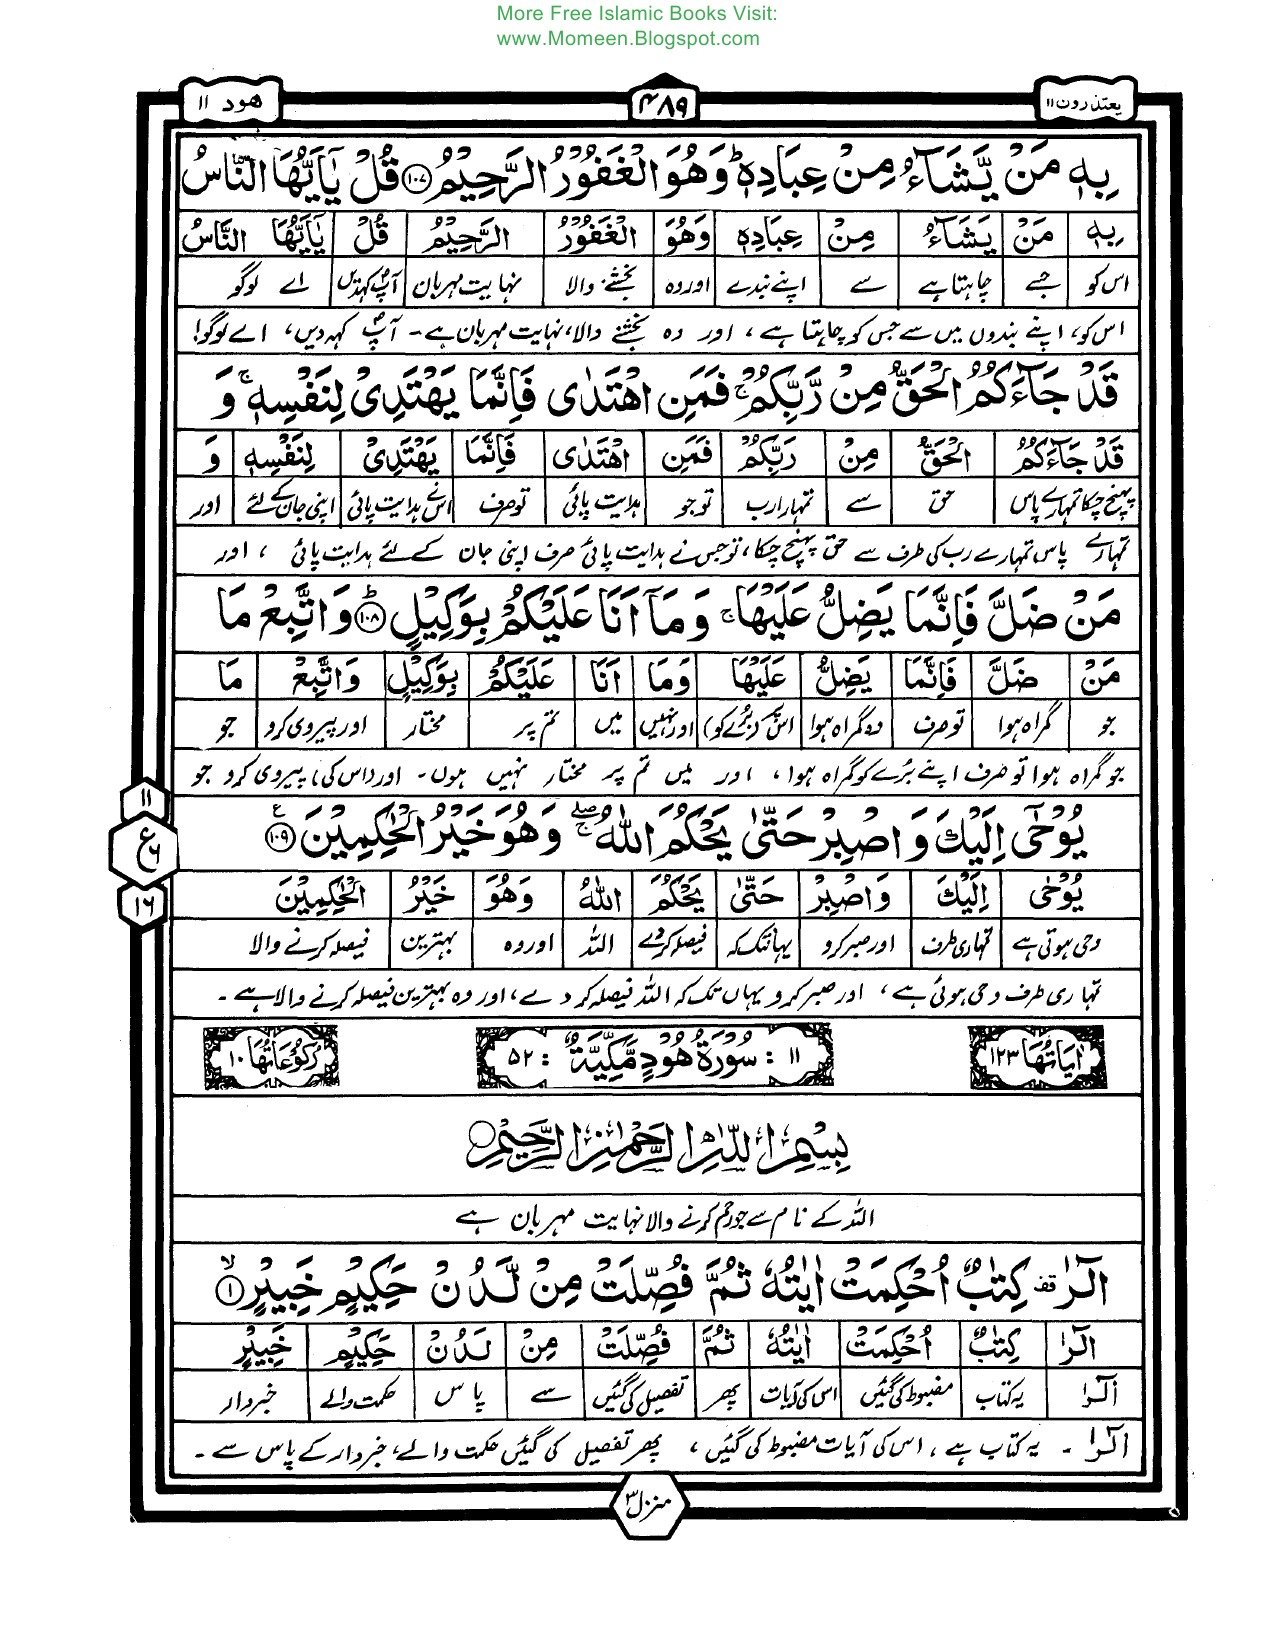 More Free Islamic Books Visit:
www.Momeen.Blogspot.com
یعتذرون ۱۱
۴۸۹
ھود ۱۱
بِهٖ مَنْ يَّشَآءُ مِنْ عِبَادِهٖ ؕ وَهُوَ الْغَفُوْرُ الرَّحِيْمُ ۱۰۷ قُلْ يٰۤاَيُّهَا النَّاسُ
بِهٖ مَنْ يَشَآءُ مِنْ عِبَادِهٖ وَهُوَ الْغَفُوْرُ الرَّحِيْمُ قُلْ يٰۤاَيُّهَا النَّاسُ
اس کو جسے چاہتا ہے سے اپنے بندے اور وہ بخشنے والا نہایت مہربان آپ کہدیں اے لوگو
اس کو، اپنے بندوں میں سے جس کو چاہتا ہے، اور وہ بخشنے والا، نہایت مہربان ہے۔ آپ کہہ دیں، اے لوگو!
قَدْ جَآءَكُمُ الْحَقُّ مِنْ رَّبِّكُمْ ۚ فَمَنِ اهْتَدٰى فَاِنَّمَا يَهْتَدِىْ لِنَفْسِهٖ ۚ وَ
قَدْ جَآءَكُمُ الْحَقُّ مِنْ رَبِّكُمْ فَمَنِ اهْتَدٰى فَاِنَّمَا يَهْتَدِىْ لِنَفْسِهٖ وَ
پہنچ چکا تمہارے پاس حق سے تمہارا رب تو جو ہدایت پائی تو صرف اس نے ہدایت پائی اپنی جان کے لئے اور
تمہارے پاس تمہارے رب کی طرف سے حق پہنچ چکا، تو جس نے ہدایت پائی صرف اپنی جان کے لئے ہدایت پائی، اور
مَنْ ضَلَّ فَاِنَّمَا يَضِلُّ عَلَيْهَا ۚ وَمَاۤ اَنَا عَلَيْكُمْ بِوَكِيْلٍ ؕ ۱۰۸ وَاتَّبِعْ مَا
مَنْ ضَلَّ فَاِنَّمَا يَضِلُّ عَلَيْهَا وَمَا اَنَا عَلَيْكُمْ بِوَكِيْلٍ وَاتَّبِعْ مَا
جو گمراہ ہوا تو صرف وہ گمراہ ہوا اس پر (برے کو) اور نہیں میں تم پر مختار اور پیروی کرو جو
جو گمراہ ہوا تو صرف اپنے بُرے کو گمراہ ہوا، اور میں تم پر مختار نہیں ہوں۔ اور (اس کی) پیروی کرو جو
۱۱
ع
۶
۱۶
يُوْحٰۤى اِلَيْكَ وَاصْبِرْ حَتّٰى يَحْكُمَ اللّٰهُ ۖۚ وَهُوَ خَيْرُ الْحٰكِمِيْنَ ۱۰۹ ع
يُوْحٰى اِلَيْكَ وَاصْبِرْ حَتّٰى يَحْكُمَ اللّٰهُ وَهُوَ خَيْرُ الْحٰكِمِيْنَ
وحی ہوتی ہے تمہاری طرف اور صبر کرو یہانتک کہ فیصلہ کردے اللہ اور وہ بہترین فیصلہ کرنے والا
تمہاری طرف وحی ہوئی ہے، اور صبر کرو یہاں تک کہ اللہ فیصلہ کر دے، اور وہ بہترین فیصلہ کرنے والا ہے۔
اٰيَاتُهَا ۱۲۳
۱۱ : سُوْرَةُ هُوْدٍ مَّكِّيَّةٌ : ۵۲
رُكُوْعَاتُهَا ۱۰
بِسْمِ اللّٰهِ الرَّحْمٰنِ الرَّحِيْمِ
اللہ کے نام سے جو رحم کرنے والا نہایت مہربان ہے
الٓرٰ ۛقف كِتٰبٌ اُحْكِمَتْ اٰيٰتُهٗ ثُمَّ فُصِّلَتْ مِنْ لَّدُنْ حَكِيْمٍ خَبِيْرٍ ۙ ۱
الٓرٰ كِتٰبٌ اُحْكِمَتْ اٰيٰتُهٗ ثُمَّ فُصِّلَتْ مِنْ لَدُنْ حَكِيْمٍ خَبِيْرٍ
الٓرٰ یہ کتاب مضبوط کی گئیں اس کی آیات پھر تفصیل کی گئیں سے پاس حکمت والے خبردار
الٓرٰ ۔ یہ کتاب ہے، اس کی آیات مضبوط کی گئیں، پھر تفصیل کی گئیں حکمت والے، خبردار کے پاس سے۔
منزل ۳